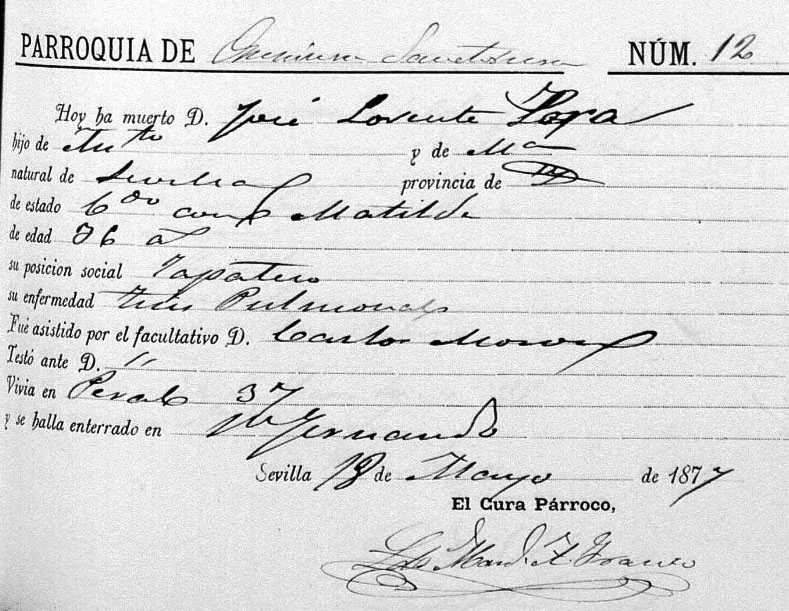 PARROQUIA DE Omnium Sanctorum NÚM. 12
Hoy ha muerto D. José Lorente
hijo de y de Mª
natural de Sevilla provincia de
de estado con Matilde
de edad 36 aˢ
su posicion social Zapatero
su enfermedad Tisis Pulmonar
Fué asistido por el facultativo D. Carlos
Testó ante D. "
Vivia en Peral 37
y se halla enterrado en Sn Fernando
Sevilla 18 de Mayo de 1877
El Cura Párroco,
Franco